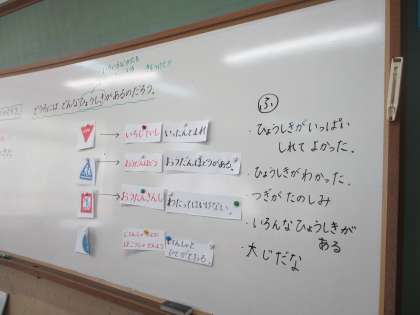 どうろには、どんなひょうしきがあるのだろう。
いちじていし
いったんとまれ
おうだんほどう
おうだんほどうがある。
おうだんきんし
わたってはいけない。
じてんしゃと
ほこうしゃせんよう
ふ
・ひょうしきがいっぱい
しれてよかった。
・ひょうしきがわかった。
つぎがたのしみ
・いろんなひょうしきが
ある
・大じだな